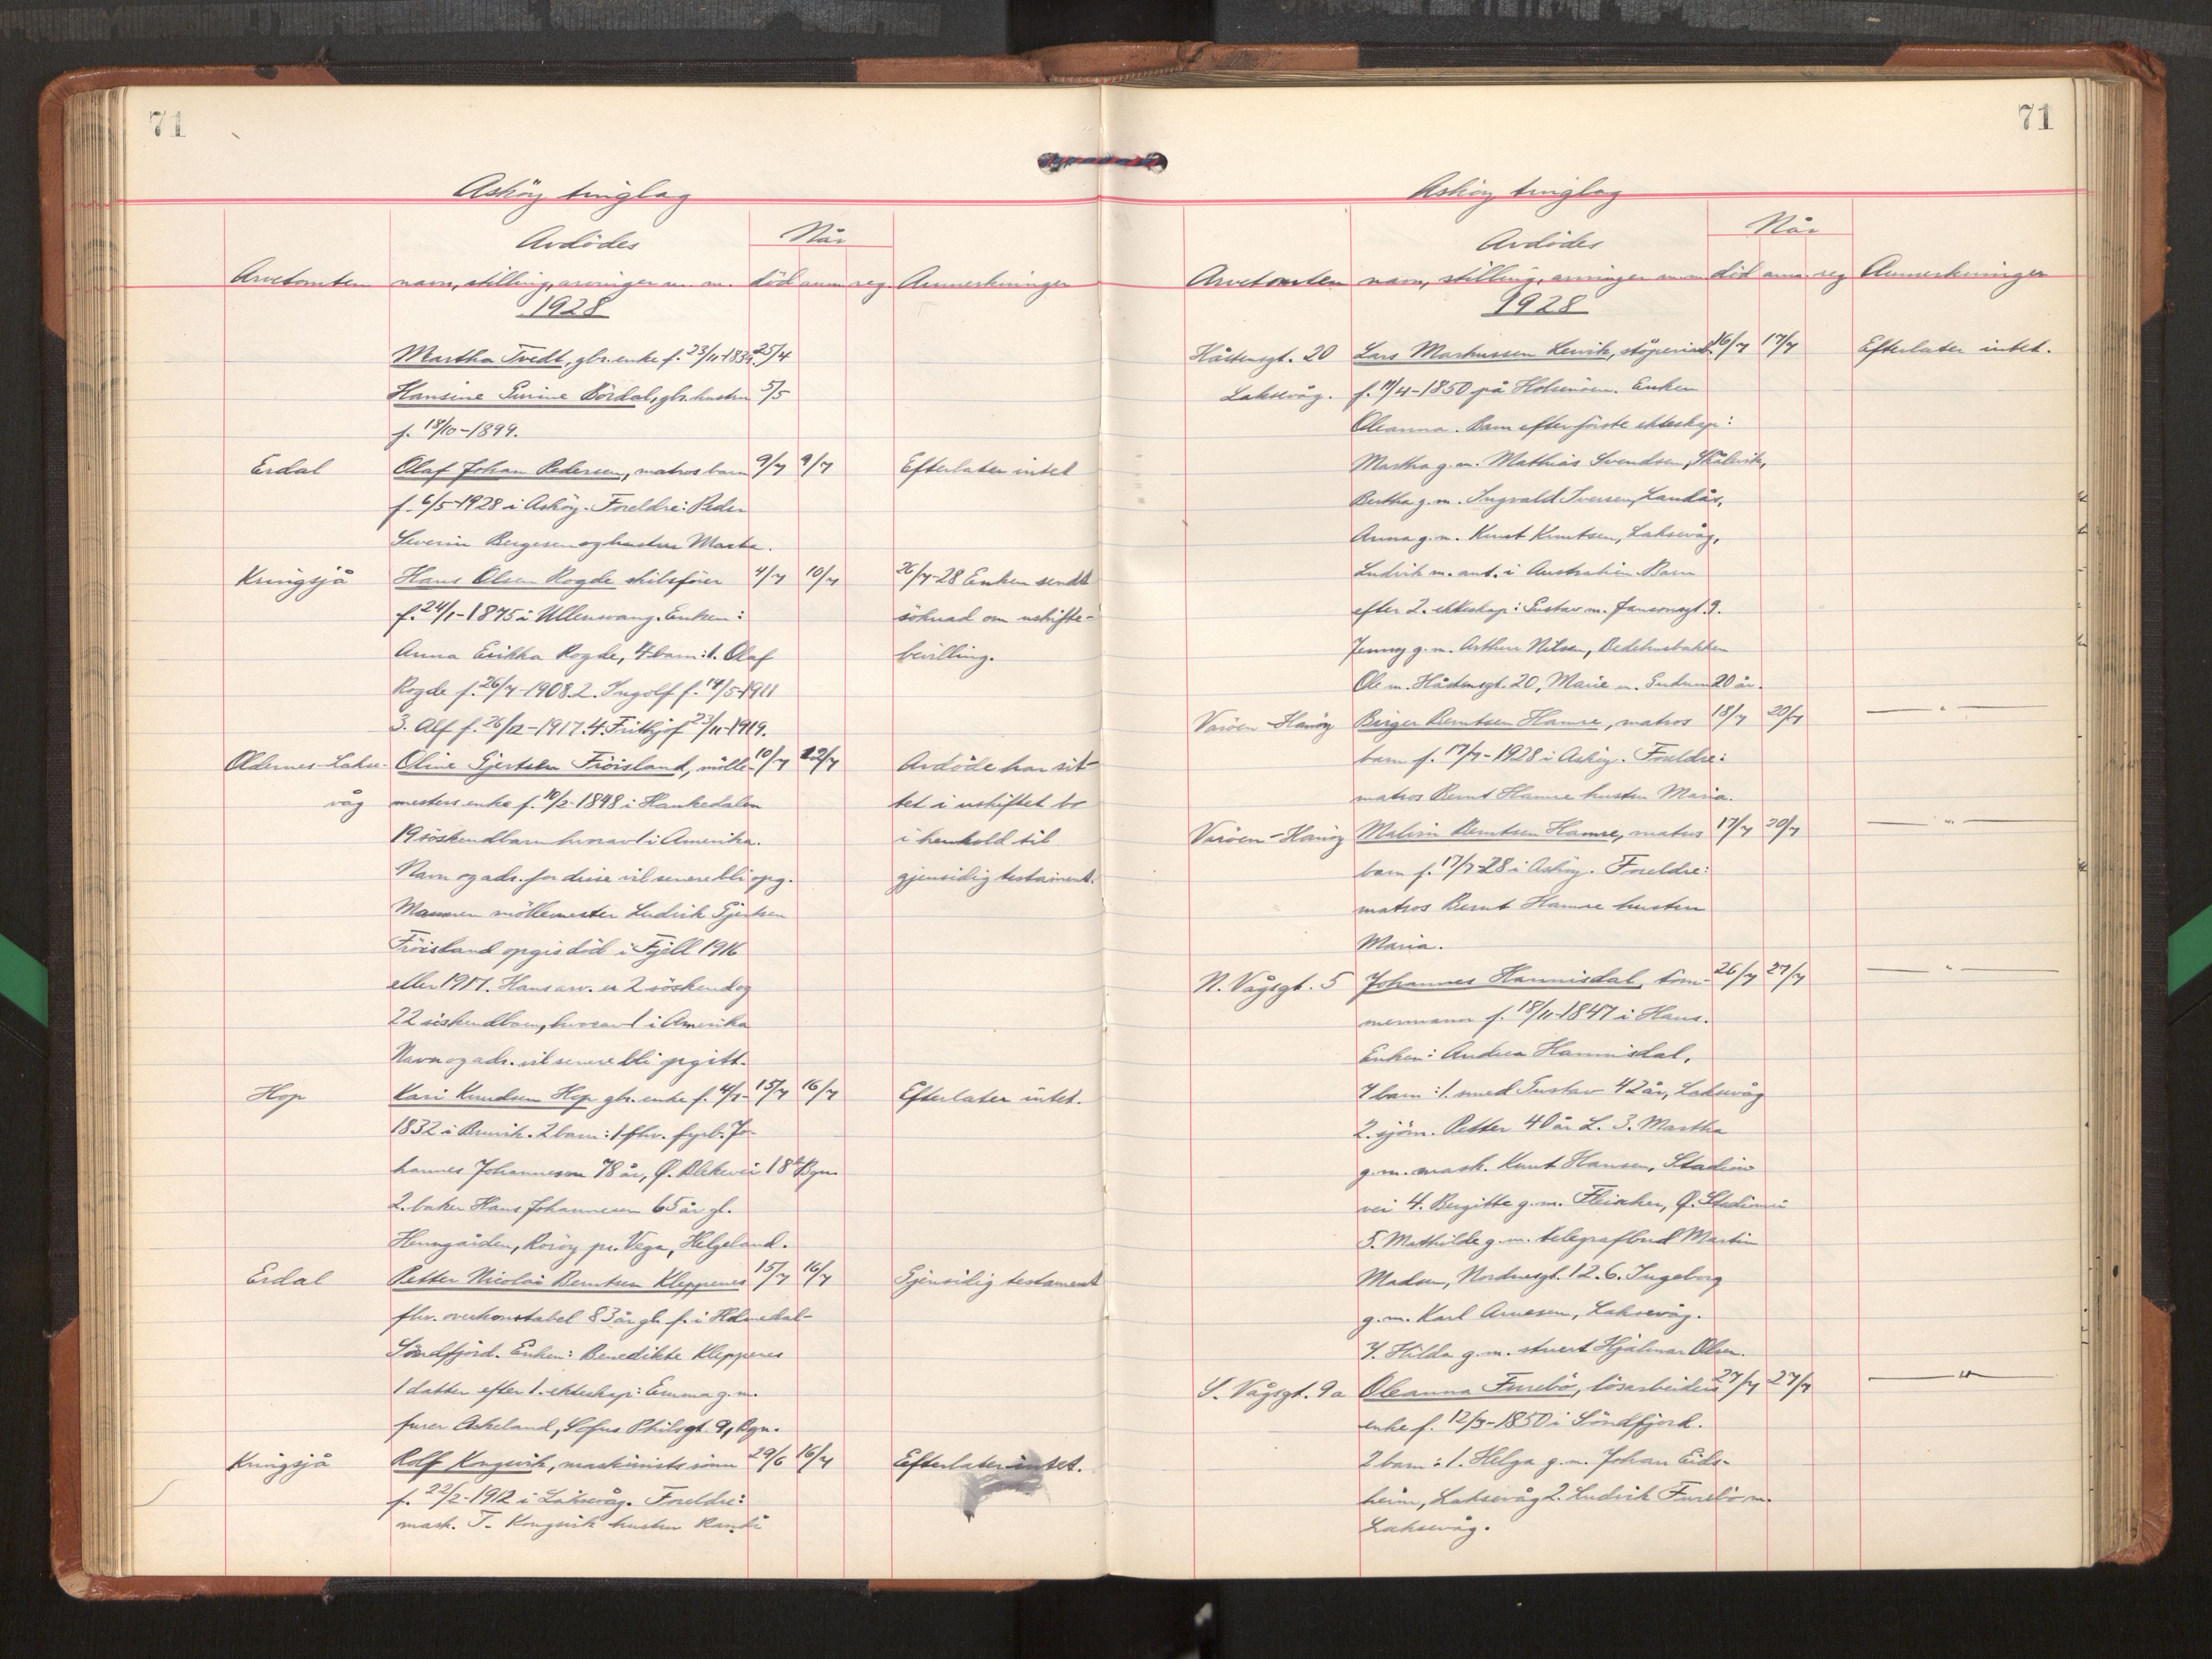 71
Asköy tinglag
Når
Avdödes
Arvetomten navn, stilling, arvinger m.m. död anm. reg. Anmerkninger
1928
Martha Tvedt, gbr.enke f. 23/11-1834 25/4
Hansine Surine Bördal, gbr.hustru 5/5
f. 18/10-1899.
Erdal Olaf Johan Pedersen, matros barn 9/7 9/7 Efterlater intet
f. 6/5-1928 i Asköy. Foreldre: Peder
Severin Bergesen og hustru Marta.
Kringsjå Hans Olsen Rogde skibsförer 4/7 10/7 26/7-28 Enken sendt
f. 24/1-1875 i Ullensvang. Enken: söknad om uskifte-
Anna Erikka Rogde, 4 barn: 1. Olaf bevilling.
Rogde f. 26/7-1908. 2. Ingolf f. 14/5-1911
3. Alf f. 26/12-1917. 4. Frithjof 23/11-1919.
Oldernes-Lakse- Oline Gjertsen Fröisland, mölle- 10/7 12/7 Avdöde har sit-
våg mesters enke f. 10/2-1848 i Haukedalen tet i uskiftet bo
19 söskendbarn hvorav 1 i Amerika. i henhold til
Navn og adr. for disse vil senere bli opg. gjensidig testament.
Mannen möllemester Ludvik Gjertsen
Fröisland opgis död i Fjell 1916
eller 1917. Hans arv. er 2 söskend og
22 söskendbarn, hvorav 1 i Amerika
Navn og adr. vil senere bli opgitt.
Hop Kari Knudsen Hop gbr. enke f. 4/1- 15/7 16/7 Efterlater intet.
1832 i Bruvik. 2 barn: 1 fhv. fyrb. Jo-
hannes Johannesen 78 år, Ø. Blekevei 18 Bgn.
2. baker Hans Johannesen 65 år gl.
Heimgården, Roröy pr. Vega, Helgeland.
Erdal Petter Nicolai Berntsen Kleppenes 15/7 16/7 Gjensidig testament
fhv. overkonstabel 83 år gl. f. i Holmedal-
Söndfjord. Enken: Benedikte Kleppenes
1 datter efter 1. ekteskap: Emma g.m.
furer Askeland, Sofus Philsgt. 9, Bgn.
Kringsjå Rolf Kongsvik, maskinists sönn 29/6 16/7 Efterlater intet.
f. 22/2-1912 i Laksevåg. Foreldre:
mask. T. Kongsvik hustru Randi
71
Asköy tinglag
Når
Avdödes
Arvetomten navn, stilling, arvinger m.m. död anm. reg. Anmerkninger
1928
Håstensgt. 20 Lars Markussen Lervik, stöperiarb. 16/7 17/7 Efterlater intet.
Laksevåg. f. 11/4-1850 på Holsenöen. Enken
Oleanna. Barn efter förste ekteskap:
Martha g.m. Mathias Svendsen, Skålevik,
Bertha g.m. Ingvald Iversen, Landås,
Anna g.m. Knut Knutsen, Laksevåg,
Ludvik m. ant. i Australien. Barn
efter 2. ekteskap: Gustav m. Jansonsgt. 9.
Jenny g.m. Arthur Nilsen, Bedehusbakken
Ole m. Håstensgt. 20, Marie u. Gudrun 20 år.
Varöen - Hanöy Birger Berntsen Hamre, matros 18/7 20/7 — " —
barn f. 17/7-1928 i Asköy. Foreldre:
matros Bernt Hamre hustru Maria.
Varöen - Hanöy Malvin Berntsen Hamre, matros 17/7 20/7 — " —
barn f. 17/7-28 i Asköy. Foreldre:
matros Bernt Hamre hustru
Maria.
N. Vågsgt. 5 Johannes Hannisdal, töm- 26/7 27/7 — " —
mermann f. 18/11-1847 i Haus.
Enken: Andrea Hannisdal.
7 barn: 1. smed Gustav 42 år, Laksevåg
2. sjöm. Petter 40 år L. 3. Martha
g.m. mask. Knut Hansen, Stadion
vei 4. Bergitte g.m. Fleischer, Ø. Stadionvei
5. Mathilde g.m. telegrafbud Martin
Madsen, Nordnesgt. 12. 6. Ingeborg
g.m. Karl Arnesen, Laksevåg.
7. Hilda g.m. stuert Hjalmar Olsen.
S. Vågsgt. 9a Oleanna Furebö, lösarbeiders 27/7 27/7 — " —
enke f. 12/3-1850 i Söndfjord.
2 barn: 1. Helga g.m. Johan Eids-
heim, Laksevåg 2. Ludvik Furebö m.
Laksevåg.